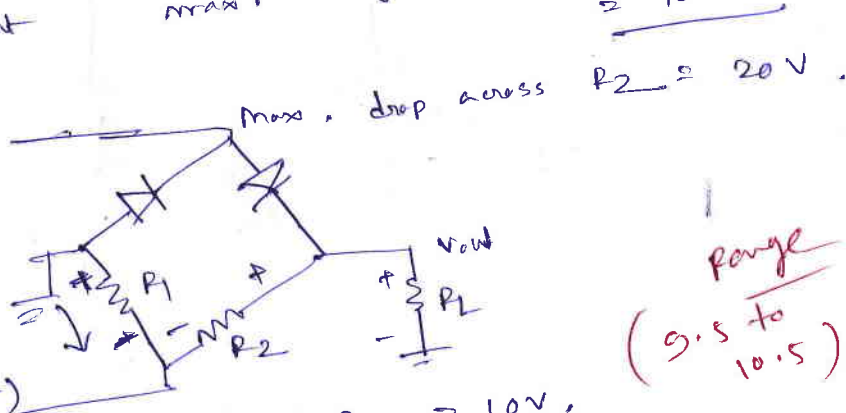 max.
Max. drop across R2 = 20 V.
Vout
R1
R2
RL
+
-
+
-
Range
(9.5 to
10.5)
= 10V.